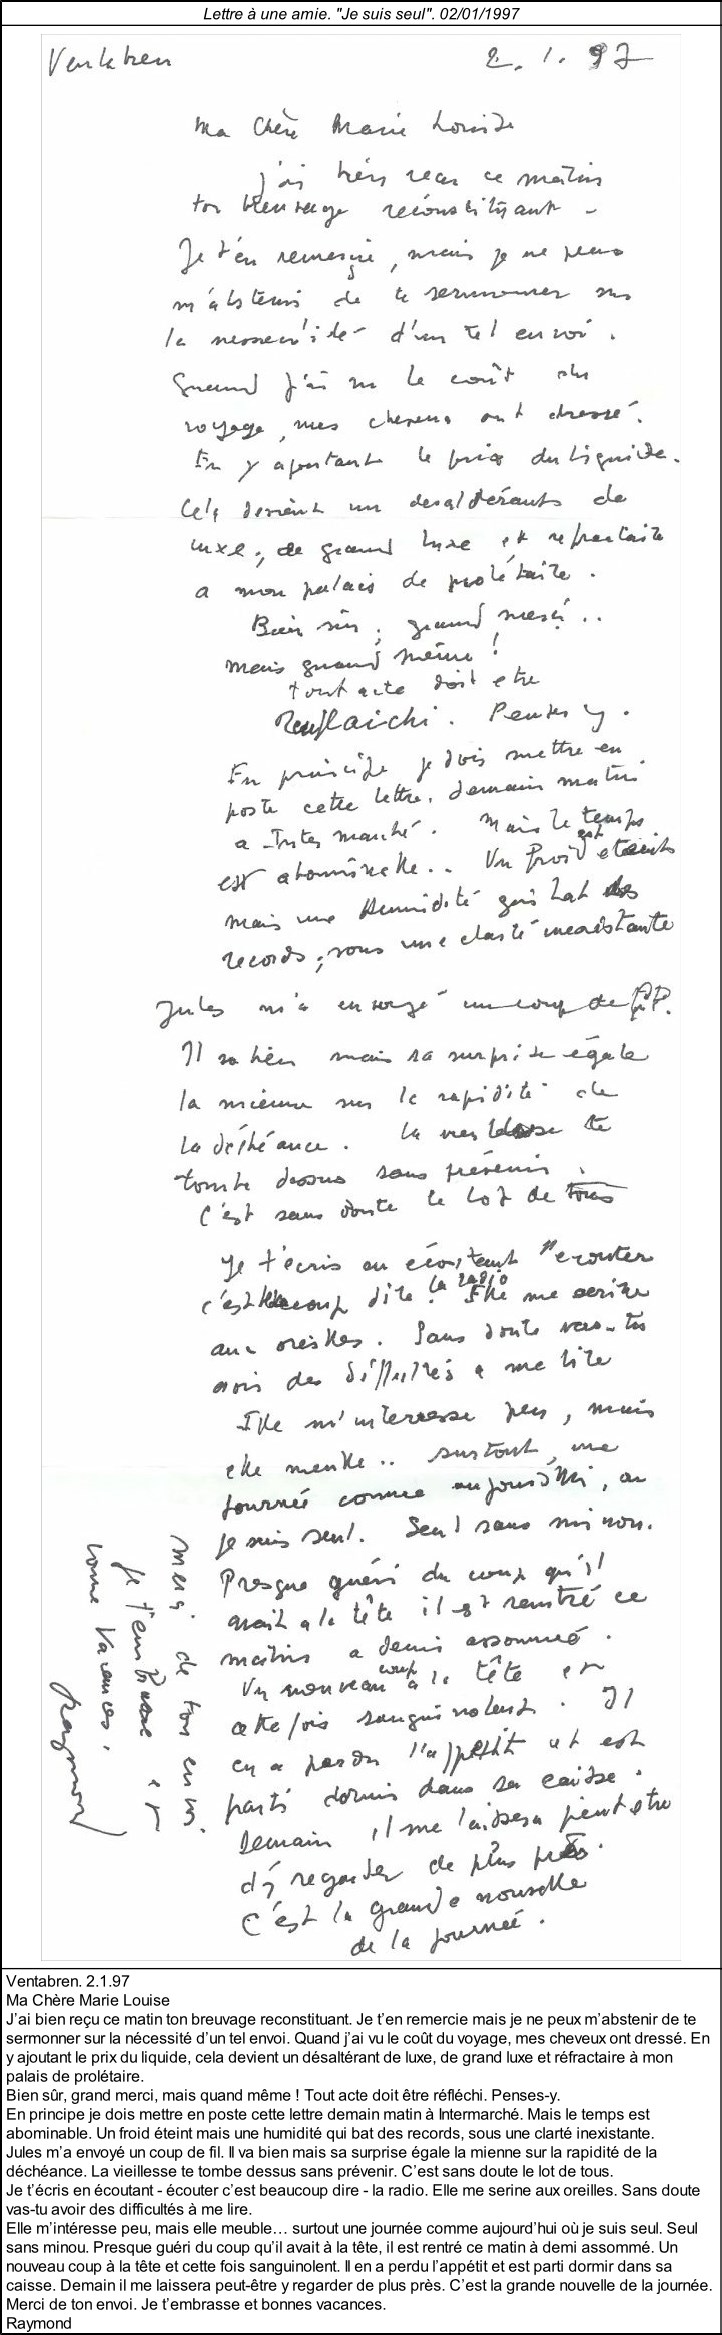 Lettre à une amie. "Je suis seul". 02/01/1997
Ventabren 2. 1. 97
Ma Chère Marie Louise
J'ai bien reçu ce matin
ton breuvage reconstituant -
Je t'en remercie, mais je ne peux
m'abstenir de te sermonner sur
la nécessité d'un tel envoi.
Quand j'ai vu le coût du
voyage, mes cheveux ont dressé.
En y ajoutant le prix du liquide.
Cela devient un desaltérants de
luxe, de grand luxe et refractaire
a mon palais de prolétaire.
Bien sûr, grand merci..
mais quand même !
tout acte doit etre
Reuflaichi. Penses y.
En principe je dois mettre en
poste cette lettre, demain matin
a Inter marché. Mais le temps
est abominable.. Un froid est eteint
mais une Humidité qui bat des
records, sous une clarté inexistante
Jules m'a envoyé un coup de
Il va bien mais sa surprise égale
la mienne sur la rapidité de
la déchéance. La vieillesse te
tombe dessus sans prévenir.
C'est sans doute le lot de tous
Je t'écris en écoutant "ecouter
c'est beaucoup dire" la radio. Elle me serine
aux oreilles. Sans doute vas-tu
avoir des difficultés a me lire
Elle m'interresse peu, mais
elle meuble.. surtout, une
journée comme aujourd'hui, ou
je suis seul. Seul sans minou.
Presque guéri du coup qu'il
avait a la tête il est rentré ce
matin a demi assommé.
Un nouveau coup à la tête et
cette fois sanguinolent. Il
en a perdu l'appetit et est
parti dormir dans sa caisse.
Demain il me laissera peut etre
d'y regarder de plus près.
C'est la grande nouvelle
de la journée.
merci de ton envoi.
Je t'embrasse et
bonne vacances.
Raymond
Ventabren. 2.1.97
Ma Chère Marie Louise
J'ai bien reçu ce matin ton breuvage reconstituant. Je t'en remercie mais je ne peux m'abstenir de te
sermonner sur la nécessité d'un tel envoi. Quand j'ai vu le coût du voyage, mes cheveux ont dressé. En
y ajoutant le prix du liquide, cela devient un désaltérant de luxe, de grand luxe et réfractaire à mon
palais de prolétaire.
Bien sûr, grand merci, mais quand même ! Tout acte doit être réfléchi. Penses-y.
En principe je dois mettre en poste cette lettre demain matin à Intermarché. Mais le temps est
abominable. Un froid éteint mais une humidité qui bat des records, sous une clarté inexistante.
Jules m'a envoyé un coup de fil. Il va bien mais sa surprise égale la mienne sur la rapidité de la
déchéance. La vieillesse te tombe dessus sans prévenir. C'est sans doute le lot de tous.
Je t'écris en écoutant - écouter c'est beaucoup dire - la radio. Elle me serine aux oreilles. Sans doute
vas-tu avoir des difficultés à me lire.
Elle m'intéresse peu, mais elle meuble… surtout une journée comme aujourd'hui où je suis seul. Seul
sans minou. Presque guéri du coup qu'il avait à la tête, il est rentré ce matin à demi assommé. Un
nouveau coup à la tête et cette fois sanguinolent. Il en a perdu l'appétit et est parti dormir dans sa
caisse. Demain il me laissera peut-être y regarder de plus près. C'est la grande nouvelle de la journée.
Merci de ton envoi. Je t'embrasse et bonnes vacances.
Raymond